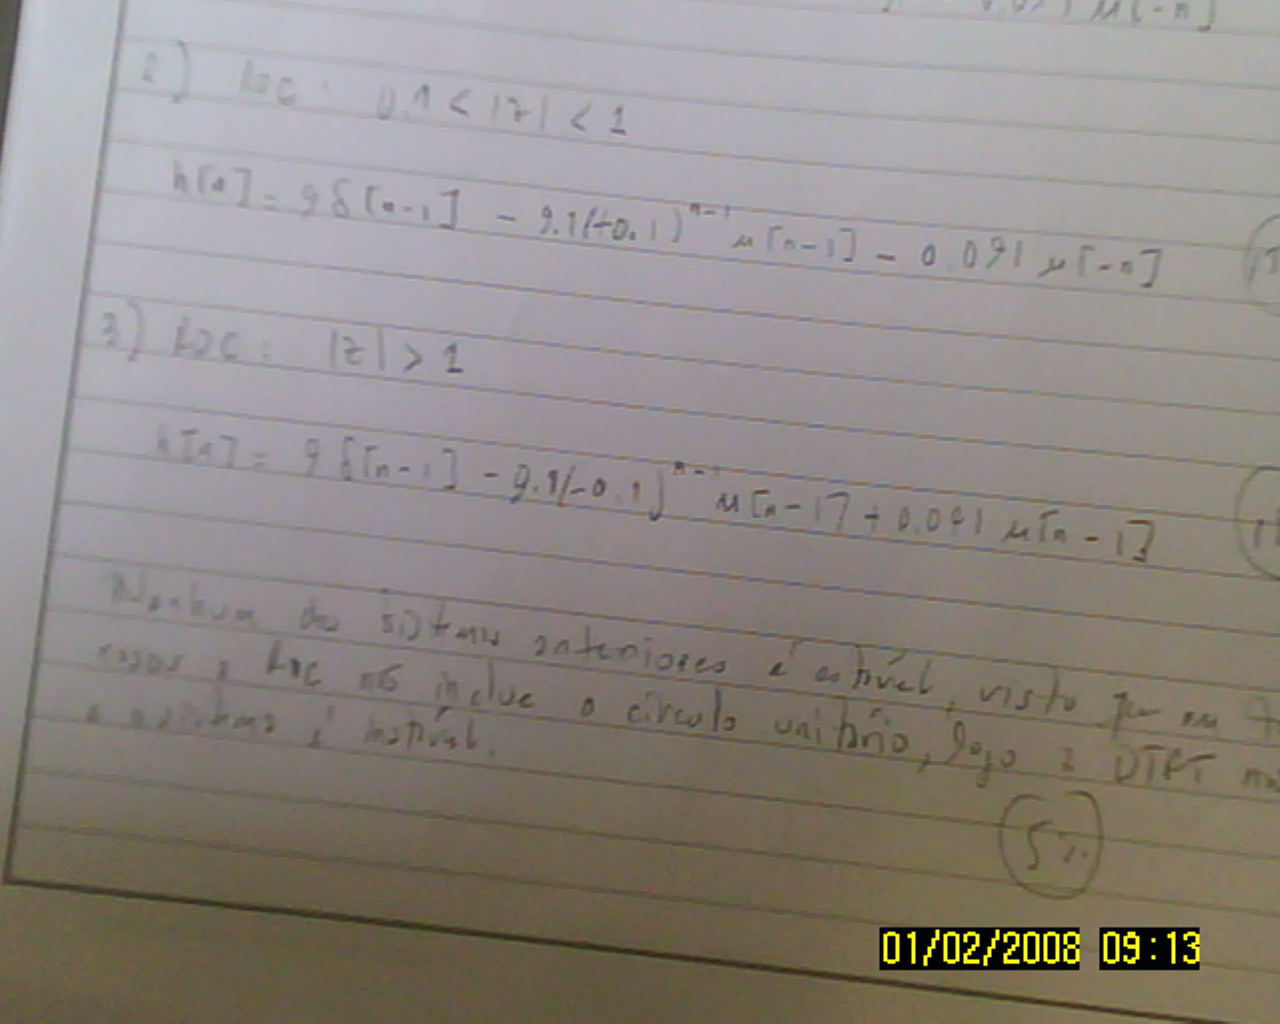 μ[-n]
2) ROC: 0.1 < |z| < 1
h[n] = 9δ[n-1] - 9.1(-0.1)^{n-1} μ[n-1] - 0.091 μ[-n]
3) ROC: |z| > 1
h[n] = 9δ[n-1] - 9.1(-0.1)^{n-1} μ[n-1] + 0.091 μ[n-1]
Nenhum dos sistemas anteriores é estável, visto que em
casos a ROC não inclue o círculo unitário, logo a DTFT
o sistema é instável.
5%
01/02/2008 09:13